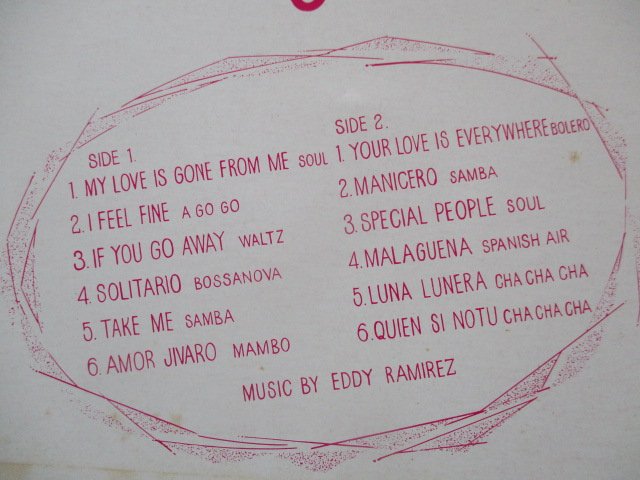 SIDE 1.
1. MY LOVE IS GONE FROM ME SOUL
2. I FEEL FINE A GO GO
3. IF YOU GO AWAY WALTZ
4. SOLITARIO BOSSANOVA
5. TAKE ME SAMBA
6. AMOR JIVARO MAMBO
SIDE 2.
1. YOUR LOVE IS EVERYWHERE BOLERO
2. MANICERO SAMBA
3. SPECIAL PEOPLE SOUL
4. MALAGUENA SPANISH AIR
5. LUNA LUNERA CHA CHA CHA
6. QUIEN SI NOTU CHA CHA CHA
MUSIC BY EDDY RAMIREZ